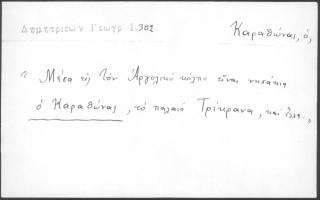 Δημητριων Γεωγρ 1.302
Καραθώνας, ὁ,
Μέσα εἰς τὸν Ἀργολικό κόλπο εἶναι νησάκια
ὁ Καραθώνας, τὸ παλαιὸ Τρίκρανα, καὶ